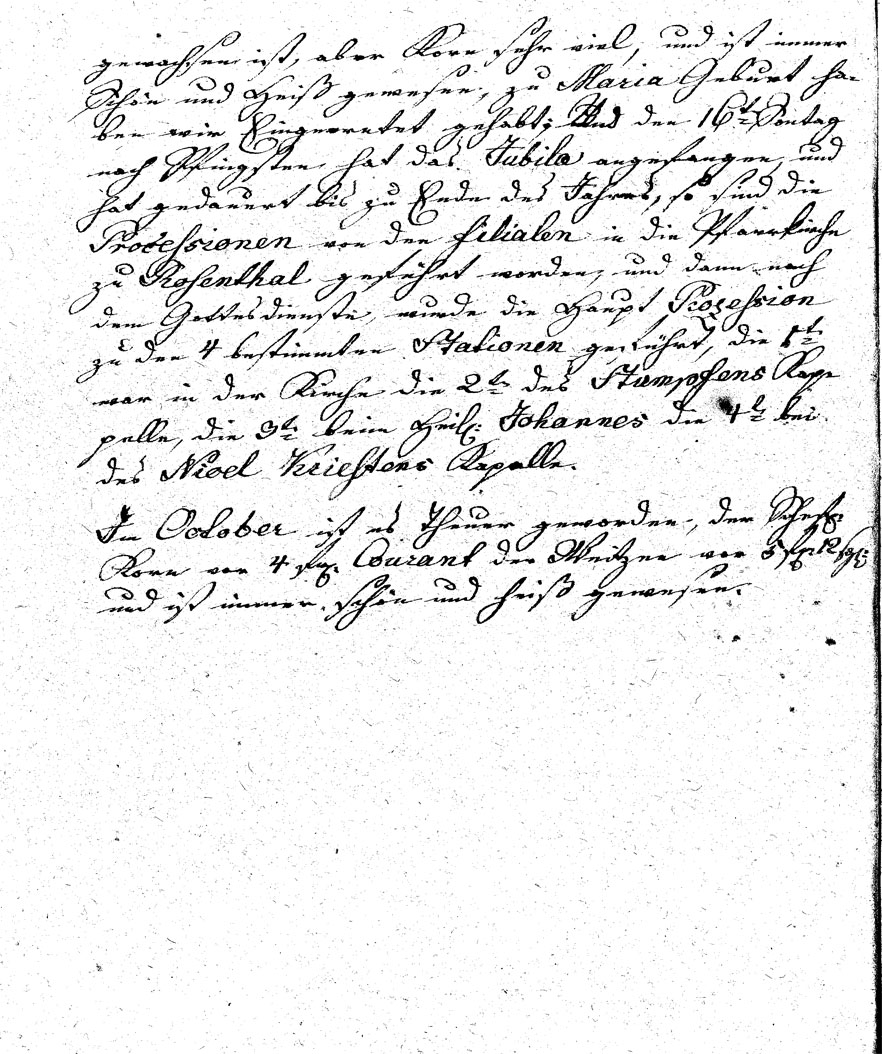 gewachsen ist, aber Korn sehr viel, und ist immer
Schön und Heiß gewesen, zu Maria Geburt ha-
ben wir Eingeerntet gehabt; Und den 16te Sontag
nach Pfingsten hat das Jubila angefangen, und
hat gedauert bis zu Ende des Jahres, so sind die
Processionen von den Filialen in die Pfarrkirche
zu Rosenthal geführt worden, und dann nach
dem Gottesdienste, wurde die Haupt Prozession
zu den 4 bestimmten Stationen geführt, die 1te
war in der Kirche die 2te des Stumpfens Kape
pelle, die 3te beim Heil: Johannes die 4te bei
des Nigel Kriestens Kapelle.
Im October ist es Theuer geworden, der Scheffe:
Korn vor 4 Courant der Weitzen vor 5 12 sgl:
und ist immer schön und heiß gewesen.